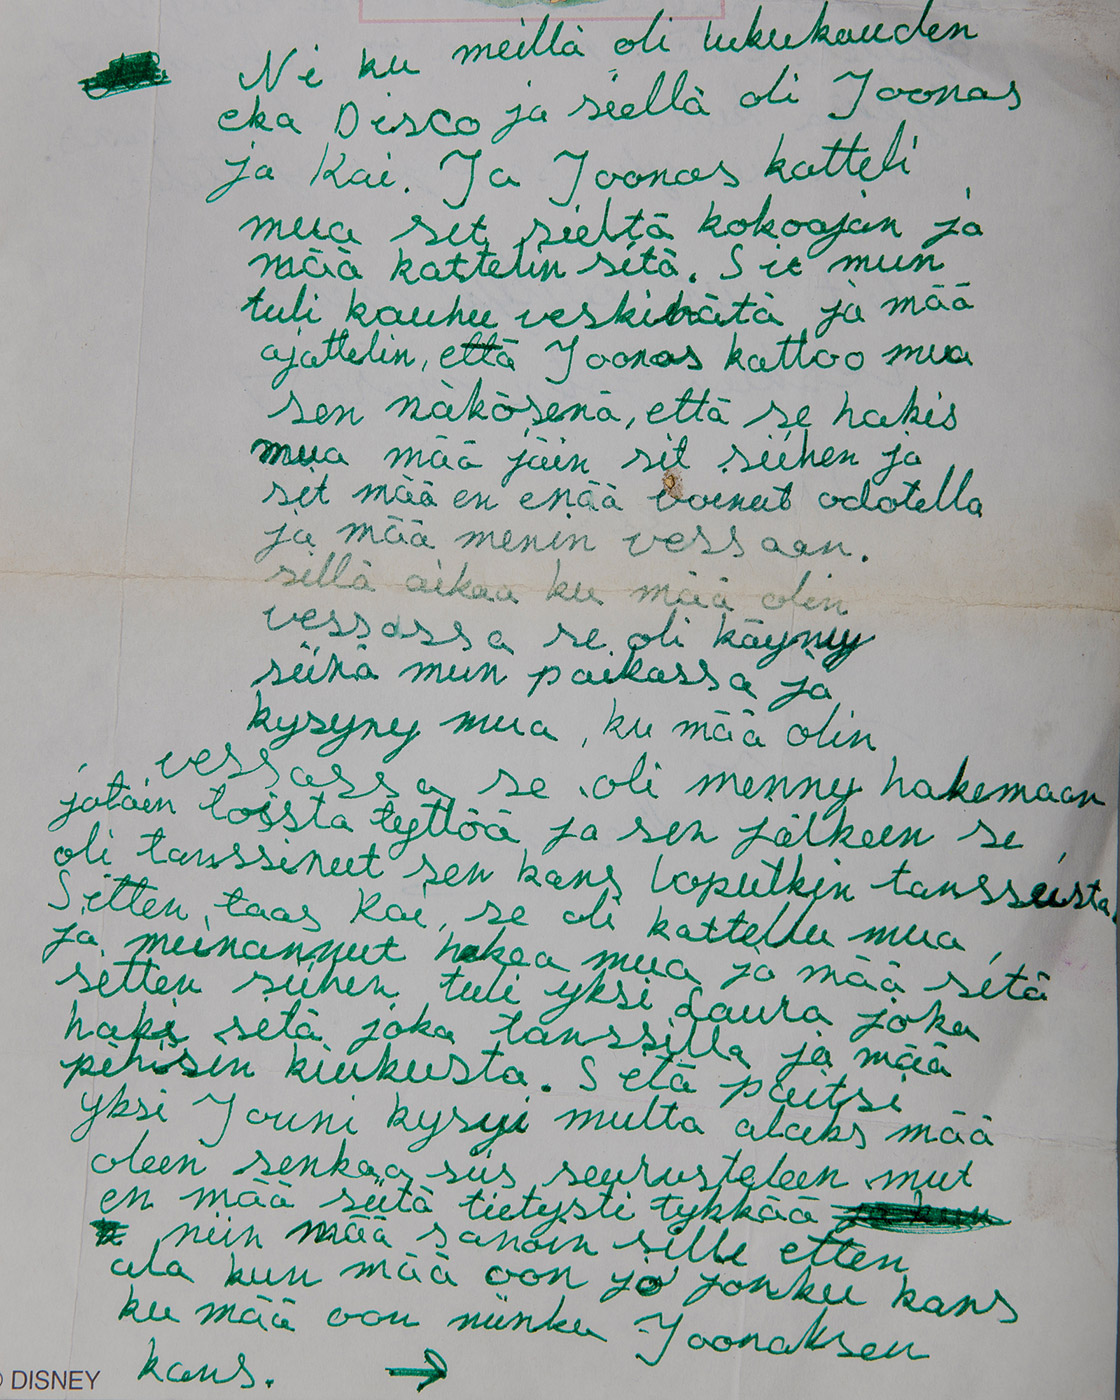 Ni ku meillä oli lukukauden
eka Disco ja siellä oli Joonas
ja Kai. Ja Joonas katteli
mua sit sieltä kokoajan ja
mää kattelin sitä. Sit mun
tuli kauhu veskihätä ja mää
ajattelin, että Joonas kattoo mua
sen näkösenä, että se hakis
mua mää jäin sit siihen ja
sit mää en enää voinut odotella
ja mää menin vessaan.
sillä aikaa ku mää olin
vessassa se oli käyny
siinä mun paikassa ja
kysyny mua, ku mää olin
vessassa se oli menny hakemaan
jotain toista tyttöä ja sen jälkeen se
oli tanssineet sen kans loputkin tansseista.
Sitten taas Kai, se oli kattellu mua
ja meinannut hakea mua ja mää sitä
sitten siihen tuli yksi Laura joka
haki sitä joka tanssilla ja mää
pihisin kiukusta. Sitä paitsi
yksi Jouni kysyi multa alaks mää
oleen senkaa siis seurusteleen mut
en mää siitä tietysti tykkää
niin mää sanoin sille etten
ala kun mää oon jo jonku kans
ku mää oon niinku Joonaksen
kans. →
© DISNEY